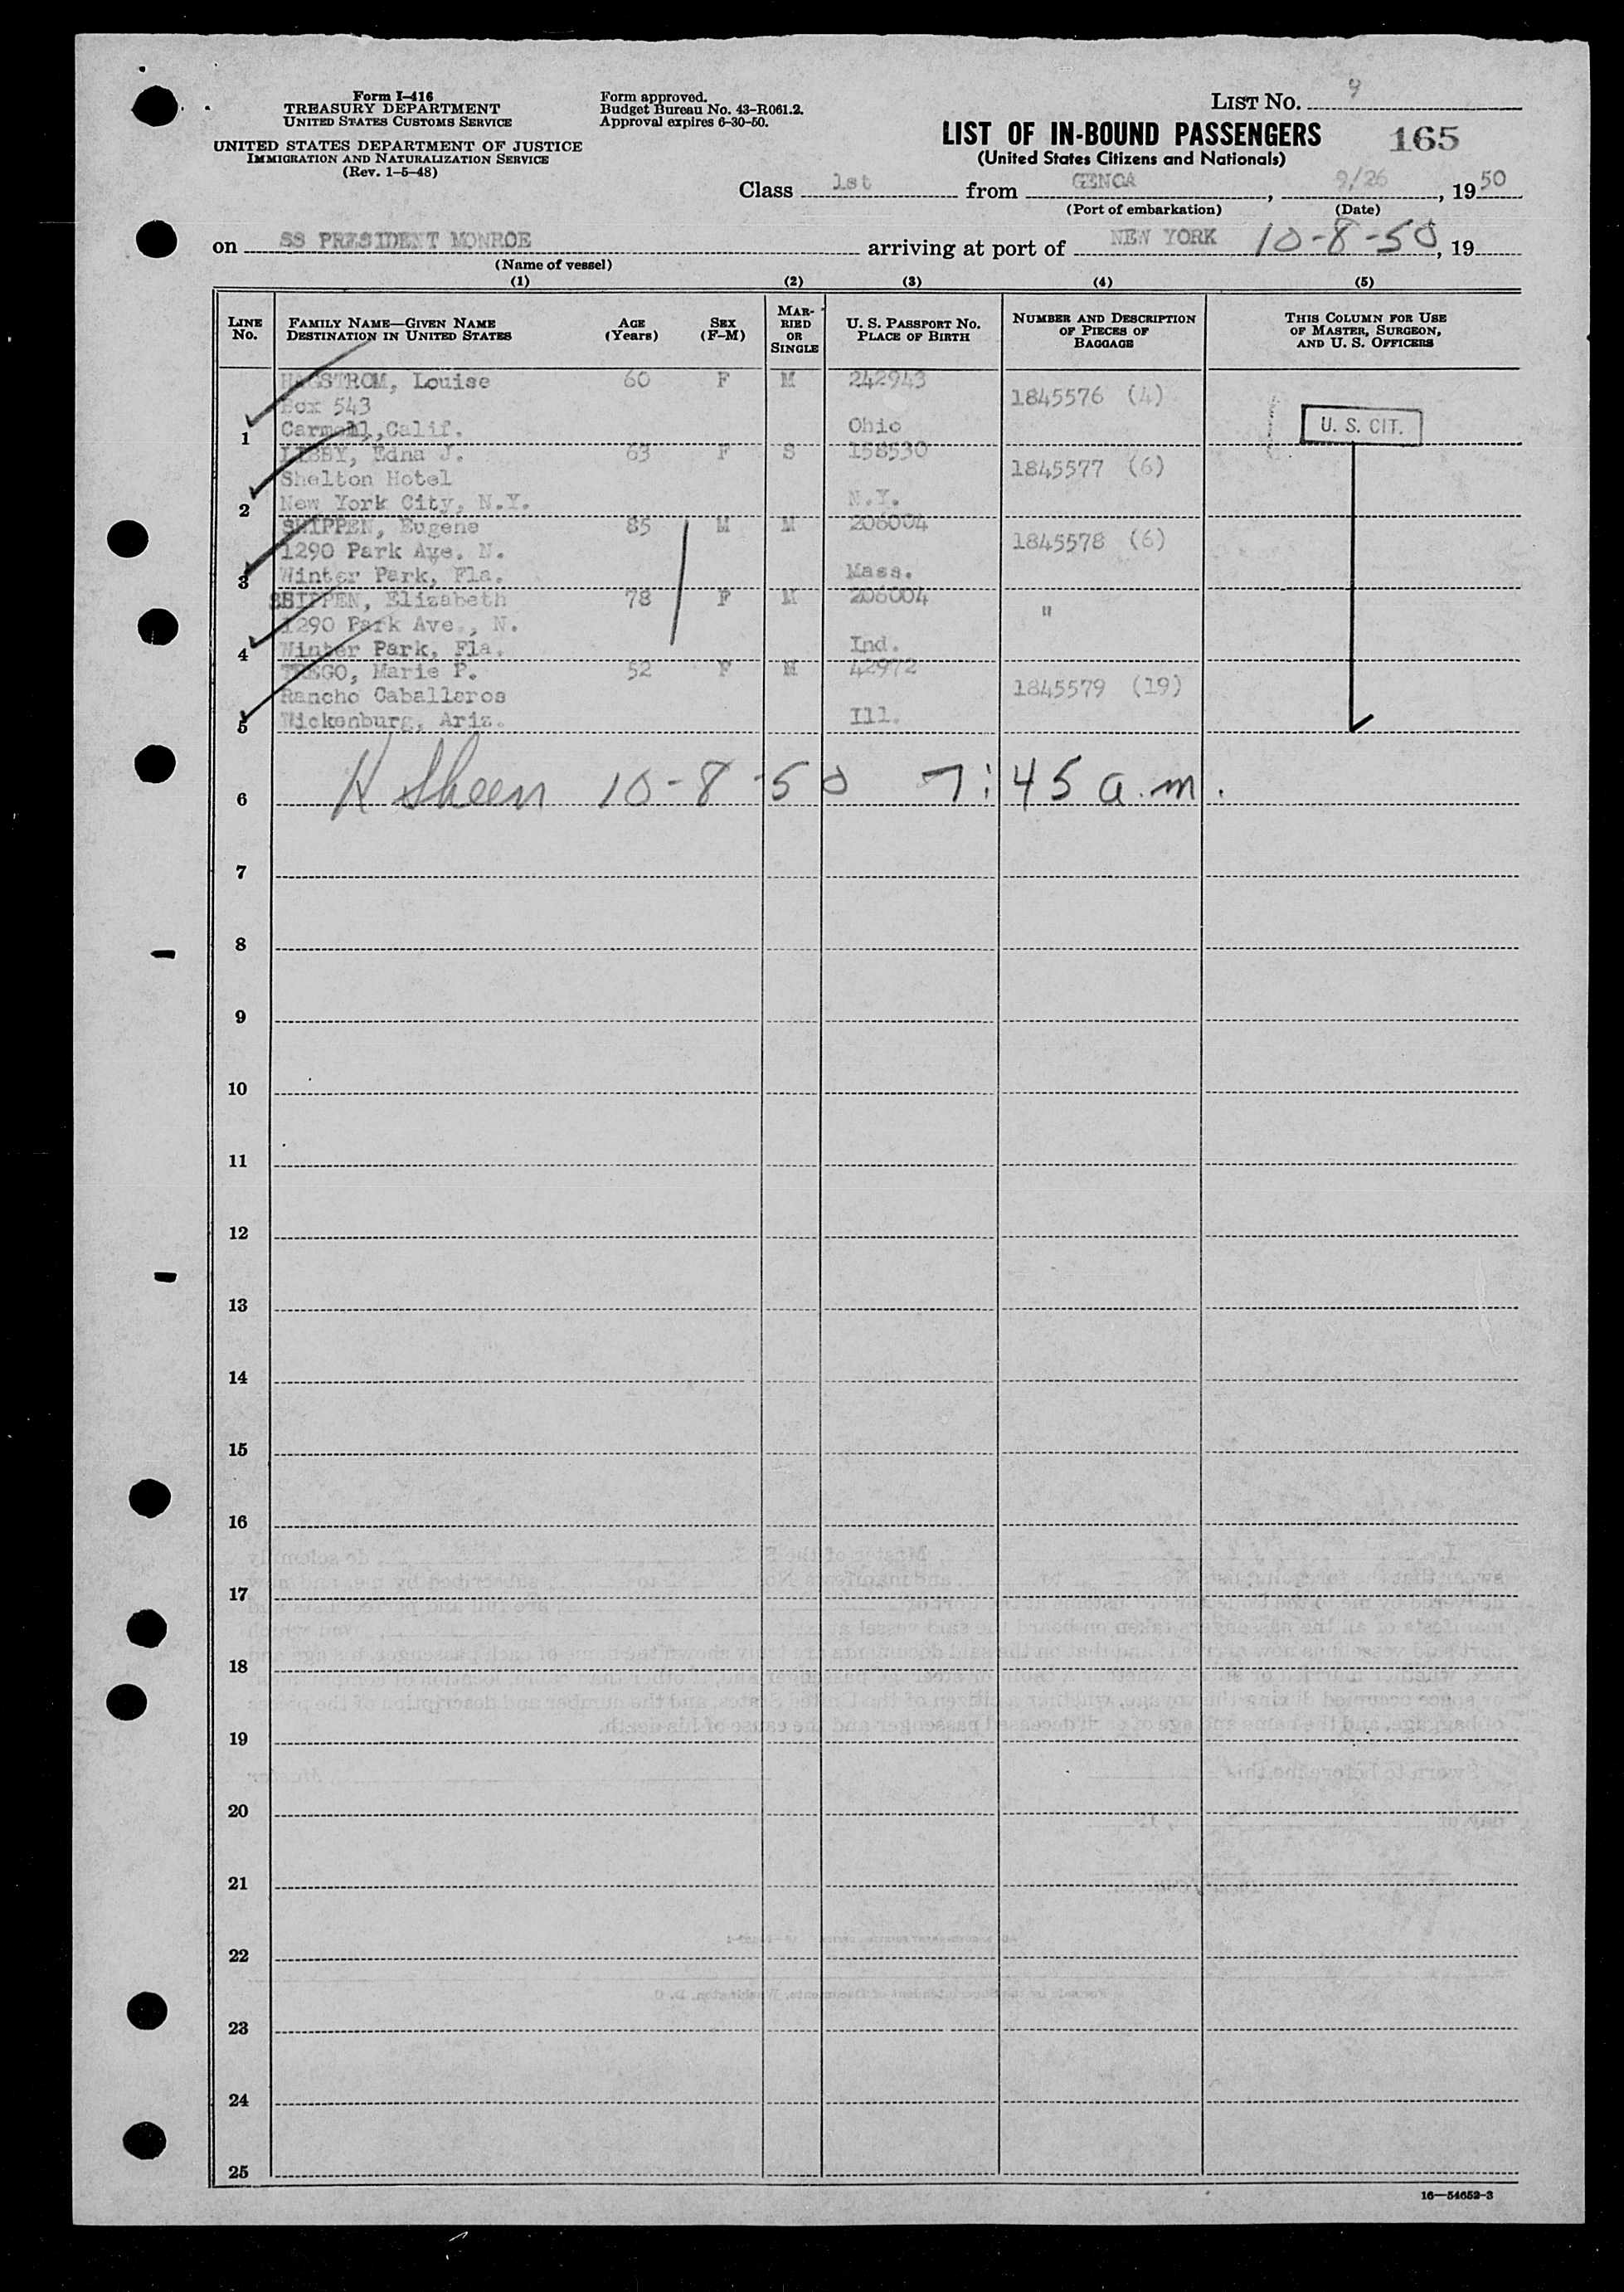 Form I-416
TREASURY DEPARTMENT
UNITED STATES CUSTOMS SERVICE
UNITED STATES DEPARTMENT OF JUSTICE
IMMIGRATION AND NATURALIZATION SERVICE
(Rev. 1-5-48)
Form approved.
Budget Bureau No. 43-R061.2.
Approval expires 6-30-50.
LIST NO. 9
LIST OF IN-BOUND PASSENGERS 165
(United States Citizens and Nationals)
Class 1st from GENOA, 9/26, 1950
(Port of embarkation) (Date)
on SS PRESIDENT MONROE arriving at port of NEW YORK 10-8-50, 19
(Name of vessel)
(1) (2) (3) (4) (5)
LINE No. FAMILY NAME—GIVEN NAME DESTINATION IN UNITED STATES AGE (Years) SEX (F-M) MARRIED OR SINGLE U. S. PASSPORT NO. PLACE OF BIRTH NUMBER AND DESCRIPTION OF PIECES OF BAGGAGE THIS COLUMN FOR USE OF MASTER, SURGEON, AND U. S. OFFICERS
HAGSTROM, Louise 60 F M 242943
Box 543 1845576 (4)
1 Carmel, Calif. Ohio U. S. CIT.
LIBBY, Edna J. 63 F S 158530
Shelton Hotel 1845577 (6)
2 New York City, N.Y. N.Y.
SHIPPEN, Eugene 85 M M 206004
1290 Park Ave. N. 1845578 (6)
3 Winter Park, Fla. Mass.
SHIPPEN, Elizabeth 78 F M 206004
1290 Park Ave., N. "
4 Winter Park, Fla. Ind.
TREGO, Marie P. 52 F M 42972
Rancho Caballeros 1845579 (19)
5 Wickenburg, Ariz. Ill.
6 H Sheen 10-8-50 7:45 a.m.
7
8
9
10
11
12
13
14
15
16
17
18
19
20
21
22
23
24
25
16—54652-3